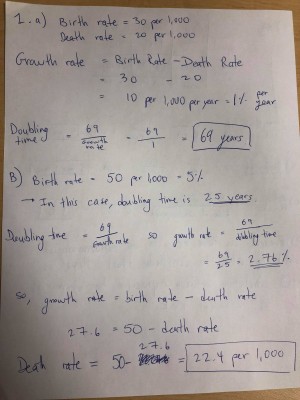 1. a) Birth rate = 30 per 1,000
Death rate = 20 per 1,000
Growth rate = Birth Rate - Death Rate
= 30 - 20
= 10 per 1,000 per year = 1% per year
Doubling time = 69 / Growth rate = 69 / 1 = 69 years
B) Birth rate = 50 per 1,000 = 5%
→ In this case, doubling time is 25 years.
Doubling time = 69 / Growth rate so growth rate = 69 / doubling time
= 69 / 25 = 2.76%
so, growth rate = birth rate - death rate
27.6 = 50 - death rate
Death rate = 50 - 27.6 = 22.4 per 1,000